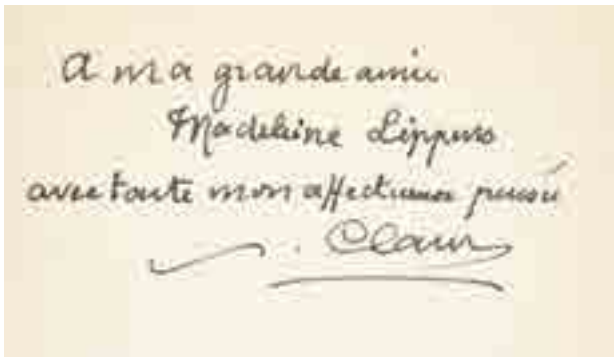 A ma grande amie
Madeleine Lippens
avec toute mon affectueuse pensée